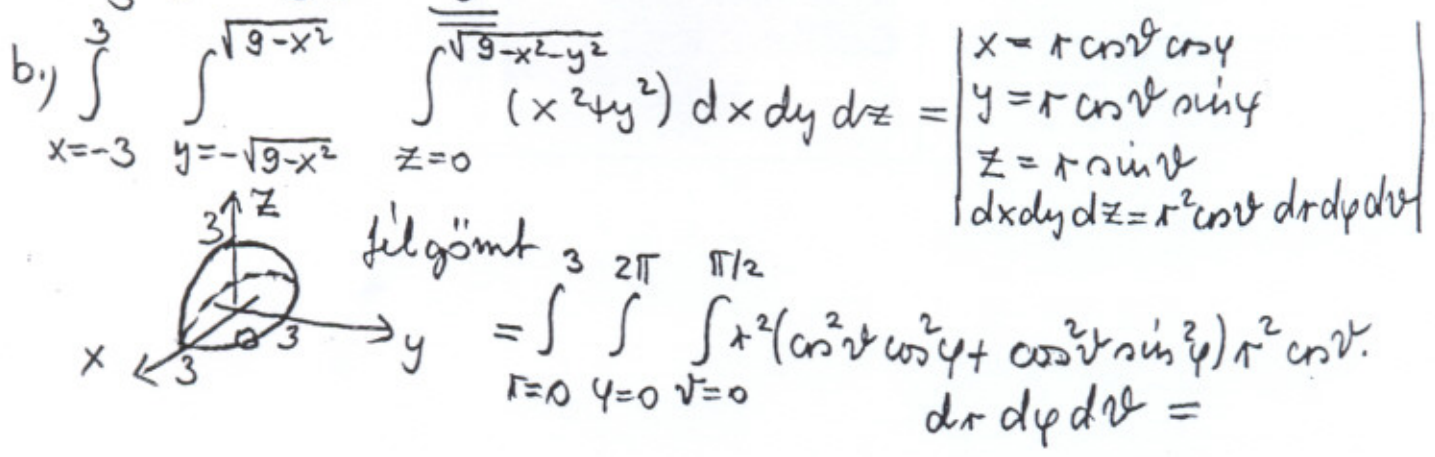 b.) ∫_{x=-3}^{3} ∫_{y=-√(9-x²)}^{√(9-x²)} ∫_{z=0}^{√(9-x²-y²)} (x²+y²) dx dy dz = | x = r cosϑ cosφ
y = r cosϑ sinφ
z = r sinϑ
dxdydz = r² cosϑ dr dφ dϑ |
z
3
félgömt
x 3 3 y
= ∫_{r=0}^{3} ∫_{φ=0}^{2π} ∫_{ϑ=0}^{π/2} r² (cos²ϑ cos²φ + cos²ϑ sin²φ) r² cosϑ.
dr dφ dϑ =